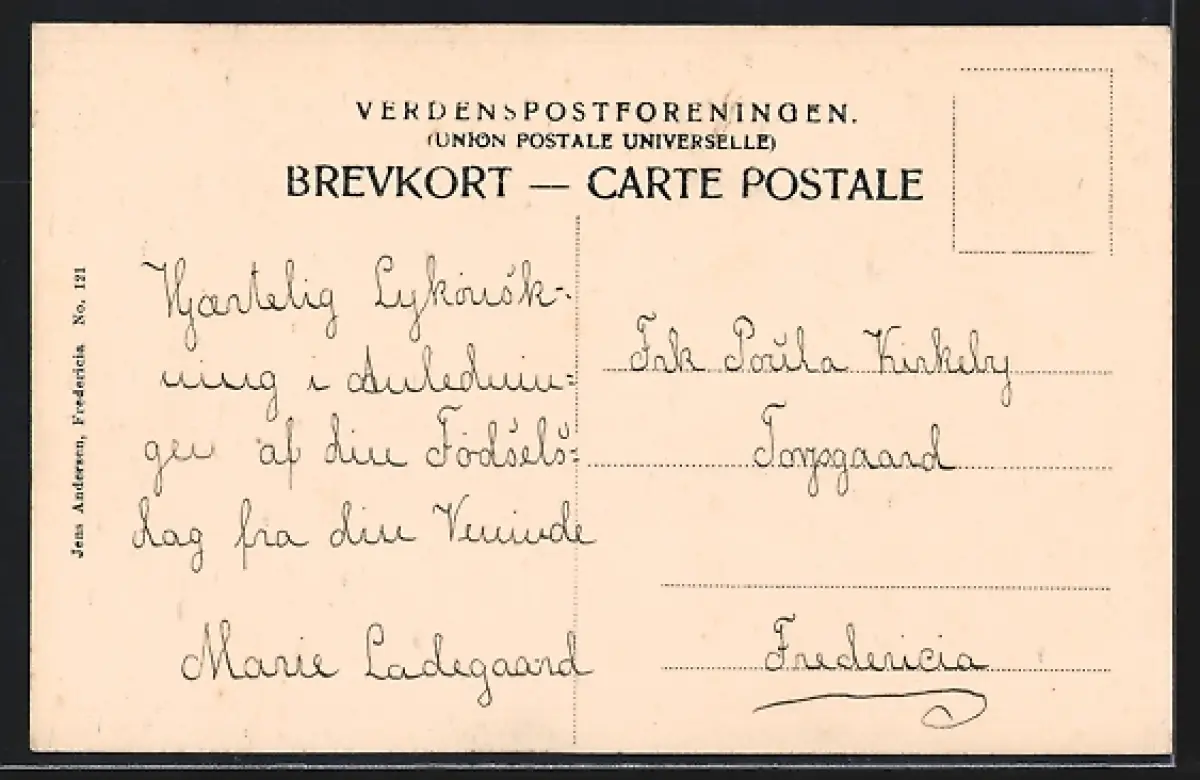 VERDENSPOSTFORENINGEN.
(UNION POSTALE UNIVERSELLE)
BREVKORT — CARTE POSTALE
Jens Andersen, Fredericia. No. 121
Hjærtelig Lykönsk-
ning i Anlednin-
gen af din Födsels-
dag fra din Veninde
Marie Ladegaard
Frk Poula Kirkeby
Fredericia